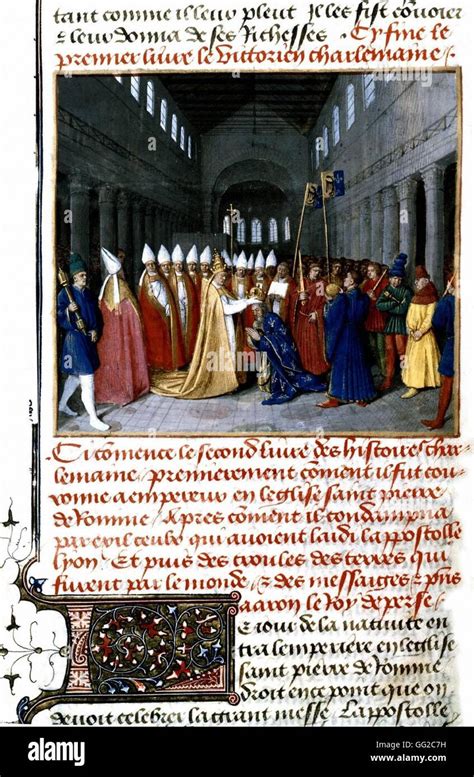 tant comme il leur pleut Il les fist convoier
& leur donna de ses Richesses Cy fine le
premier livre le victorien charlemaine
Ci comence le second livre des histoires char
lemaine premierement coment il fut cou
ronne a empereur en leglise saint pierre
de romme Apres coment il condampna
par exil ceulx qui avoient laidi lapostolle
lyon Et puis des croules des terres qui
furent par le monde & des messaiges & pns
aaron le Roy de perse
E iour de la nativite en
tra lemperiere en leglise
saint pierre de romme
droit en ce point que on
devoit celebrer la grant messe Lapostolle
alamy stock photo
GG2C7H
www.alamy.com